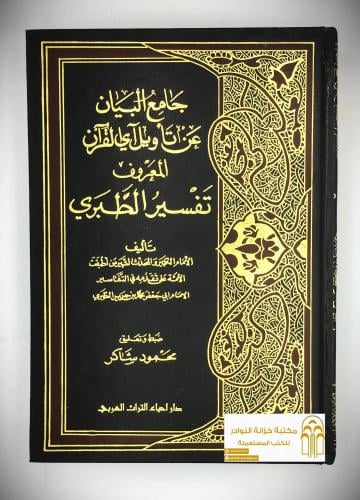 جامع البيان
عن تأويل آي القرآن
المعروف
تفسير الطبري
تأليف
الإمام الكبير والمحدث الشهير من أطبقت
الأمة على تقدمه في التفاسير
الإمام أبي جعفر محمد بن جرير الطبري
ضبط وتعليق
محمود شاكر
دار احياء التراث العربي
مكتبة خزانة النوادر
للكتب المستعملة